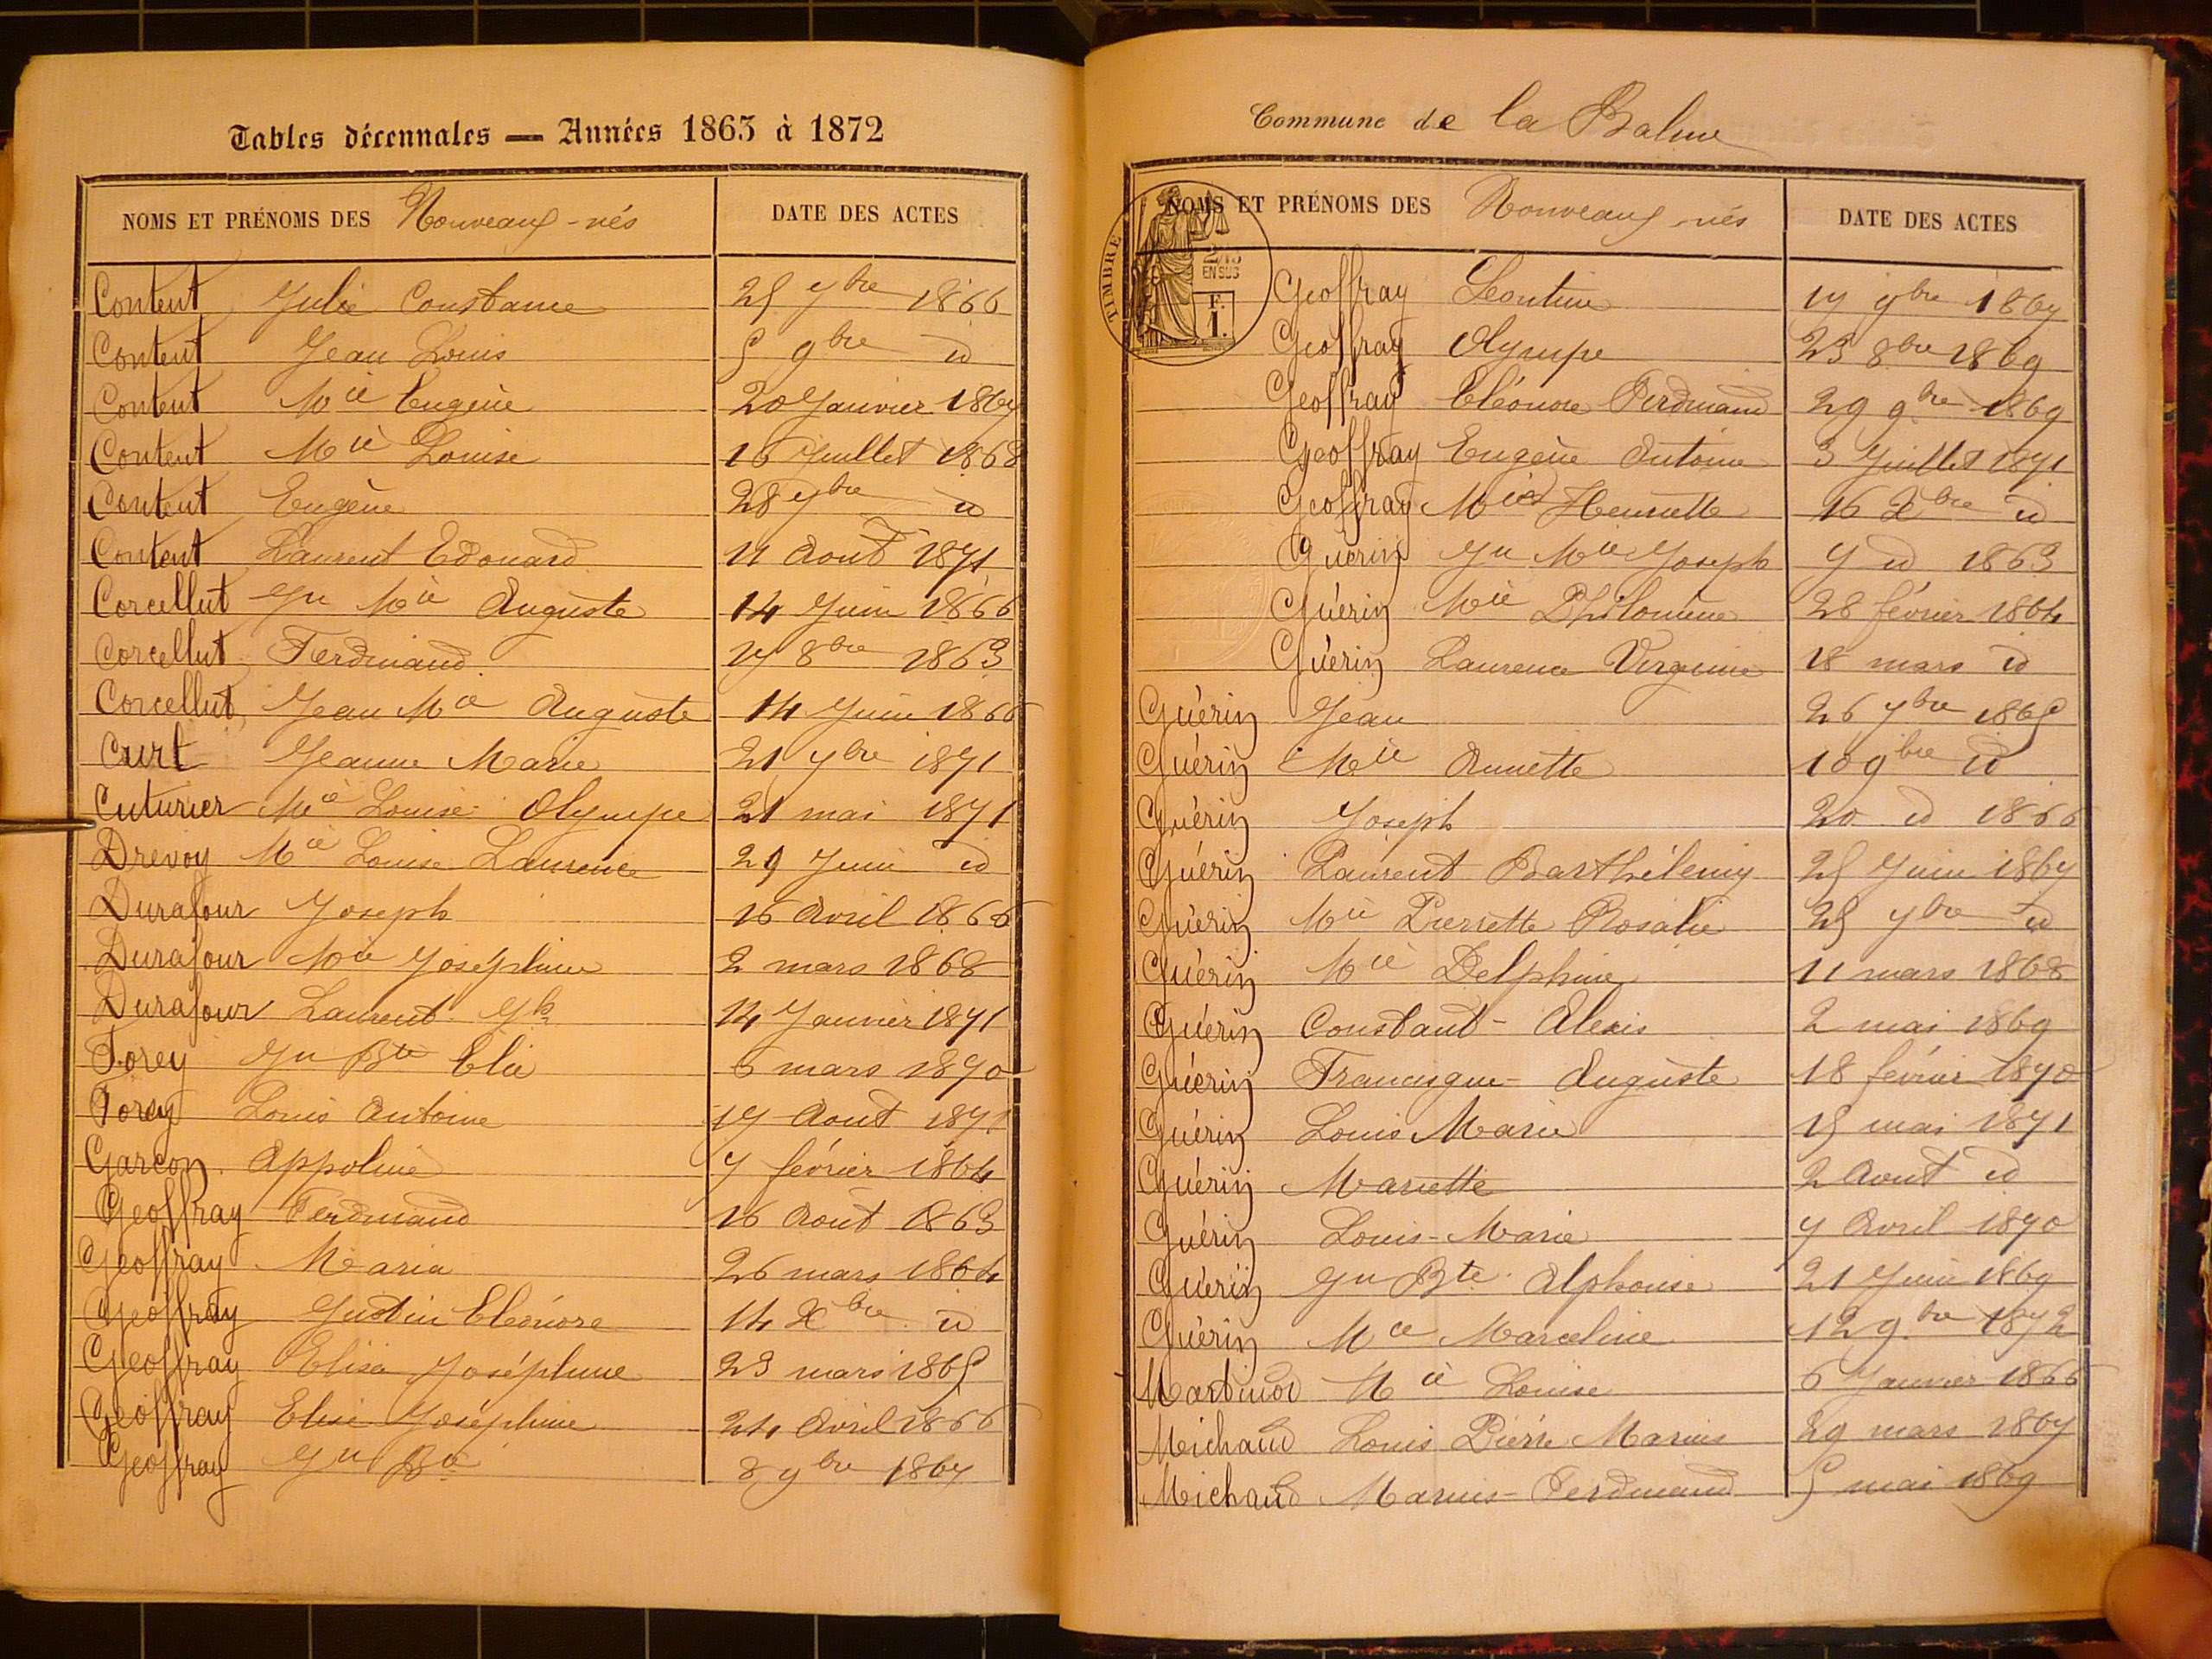 Tables décennales — Années 1863 à 1872
NOMS ET PRÉNOMS DES Nouveaux-nés DATE DES ACTES
Content Julie Constance 25 7bre 1866
Content Jean Louis 5 9bre id
Content Mie Eugénie 20 Janvier 1867
Content Mie Louise 16 Juillet 1868
Content Eugène 28 7bre id
Content Laurent Edouard 11 Aout 1871
Corcellut Jn Mie Auguste 14 Juin 1866
Corcellut Ferdinand 17 8bre 1863
Corcellut Jean Mie Auguste 14 Juin 1866
Curt Jeanne Marie 21 7bre 1871
Cuturier Mie Louise Olympe 21 mai 1871
Drevoy Mie Louise Laurence 29 Juin id
Durafour Joseph 16 Avril 1866
Durafour Mie Joséphine 2 mars 1868
Durafour Laurent Jh 14 Janvier 1871
Forey Jn Bte Elie 6 mars 1870
Forey Louis Antoine 17 Aout 1871
Garçon Appolinie 7 février 1864
Geoffray Ferdinand 16 Août 1863
Geoffray Maria 26 mars 1864
Geoffray Justin Eléonore 14 Xbre id
Geoffray Elisa Joséphine 23 mars 1865
Geoffray Elise Joséphine 24 Avril 1866
Geoffray Jn Bte 8 9bre 1867
Commune de la Balme
TIMBRE
2/10
EN SUS
1 F.
NOMS ET PRÉNOMS DES Nouveaux-nés DATE DES ACTES
Geoffray Léontine 17 9bre 1867
Geoffray Olympe 23 8bre 1869
Geoffray Eléonore Ferdinand 29 9bre 1869
Geoffray Eugène Antoine 3 Juillet 1871
Geoffray Mie Henriette 16 Xbre id
Guérin Jn Mie Joseph 7 id 1863
Guérin Mie Philomène 28 février 1864
Guérin Laurence Virginie 18 mars id
Guérin Jean 26 7bre 1865
Guérin Mie Annette 10 9bre id
Guérin Joseph 20 id 1866
Guérin Laurent Barthélemy 25 Juin 1867
Guérin Mie Pierrette Rosalie 25 7bre id
Guérin Mie Delphine 11 mars 1868
Guérin Constant-Alexis 2 mai 1869
Guérin Francisque-Auguste 18 février 1870
Guérin Louis Marie 15 mai 1871
Guérin Mariette 2 Aout id
Guérin Louis-Marie 7 Avril 1870
Guérin Jn Bte Alphonse 21 Juin 1869
Guérin Mie Marceline 12 9bre 1872
Martinod Mie Louise 6 Janvier 1866
Michaud Louis Pierre Marius 29 mars 1867
Michaud Marius-Ferdinand 5 mai 1869